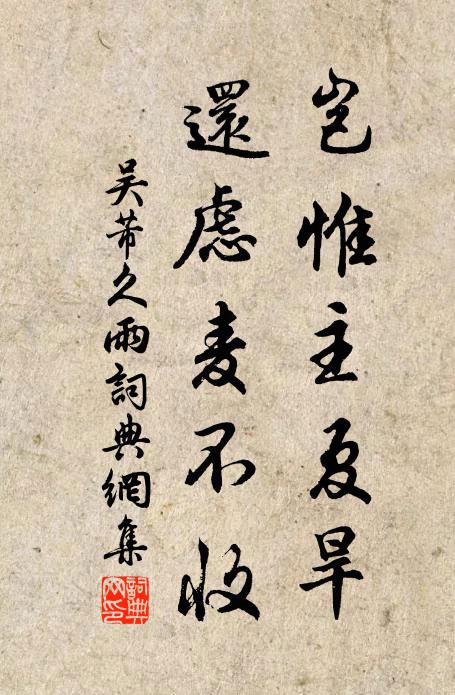 豈惟主夏旱
還慮麦不收
吴芾久雨詞典網集
詞典网印